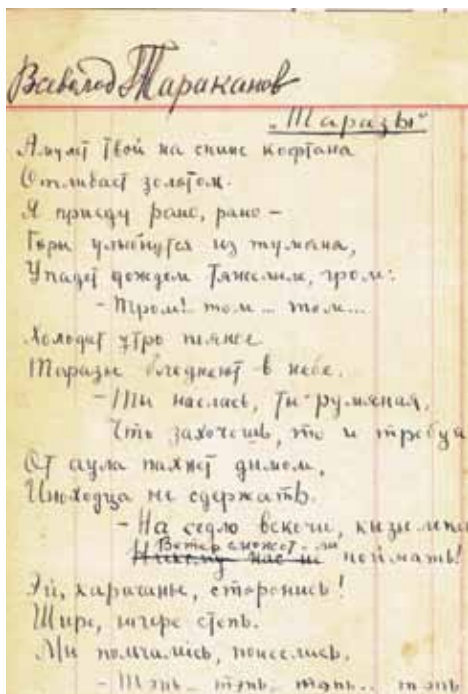 Всеволод Тараканов
„Таразы"
Амулет твой на спине кафтана
Отливает золотом.
Я приеду рано, рано –
Горы улыбнутся из тумана,
Упадет дождем тяжелым, гром:
– Тром! том... том...
Холодит утро пьяное.
Таразы бледнеют в небе.
– Ты наелась, ты румяная,
Что захочешь, то и требуй
От аула пахнет дымом,
Иноходца не сдержать.
– На седло вскочи,
Ветер сможет ли
Никому нас не поймать!
Эй, харашие, сторонись!
Шире, шире степь.
Мы помчались, понеслись.
– Тэнь.. тэнь, тэнь.. тэнь